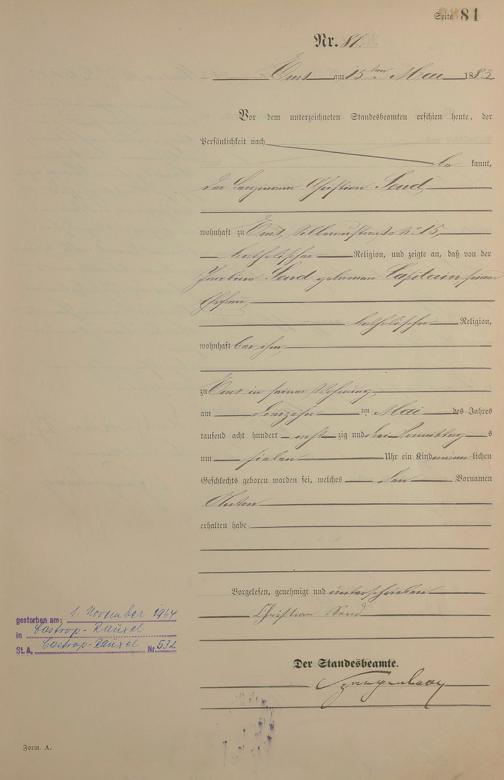 Seite 81
Nr. 81.
Ems am 15ten Mai 1883
Vor dem unterzeichneten Standesbeamten erschien heute, der
Persönlichkeit nach
be kannt,
der Bergmann Christian Sand
wohnhaft zu Ems, № 15,
katholischer Religion, und zeigte an, daß von der
Sand geborenen seiner
Ehefrau
katholischer Religion,
wohnhaft bei ihm
zu Ems in seiner Wohnung
am dreizehn ten Mai des Jahres
tausend acht hundert acht zig und drei Vormittag s
um sieben Uhr ein Kind männ lichen
Geschlechts geboren worden sei, welches den Vornamen
Anton
erhalten habe
Vorgelesen, genehmigt und unterschrieben
Christian Sand
Der Standesbeamte.
gestorben am: 1. November 1964
in Castrop-Rauxel
St.A. Castrop-Rauxel Nr. 532
Form. A.